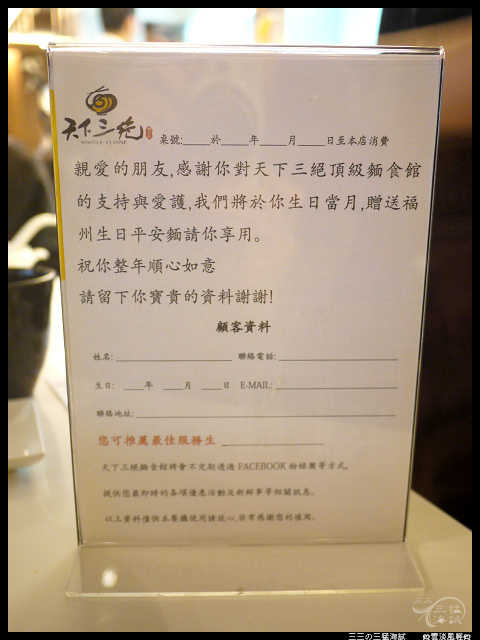 天下三絕
NOODLE CUISINE
桌號:____於____年____月____日至本店消費
親愛的朋友,感謝你對天下三絕頂級麵食館
的支持與愛護,我們將於你生日當月,贈送福
州生日平安麵請你享用。
祝你整年順心如意
請留下你寶貴的資料謝謝!
顧客資料
姓名:____________ 聯絡電話:____________
生日: ____年 ____月 ____日 E-MAIL:____________
聯絡地址:____________
您可推薦最佳服務生____________
天下三絕麵食館將會不定期透過 FACEBOOK 粉絲團等方式,
提供您最即時的各項優惠活動及新鮮事等相關訊息。
以上資料僅供本餐廳使用請放心,非常感謝您的填寫。
三三の三猛海賊
雲淡風輕